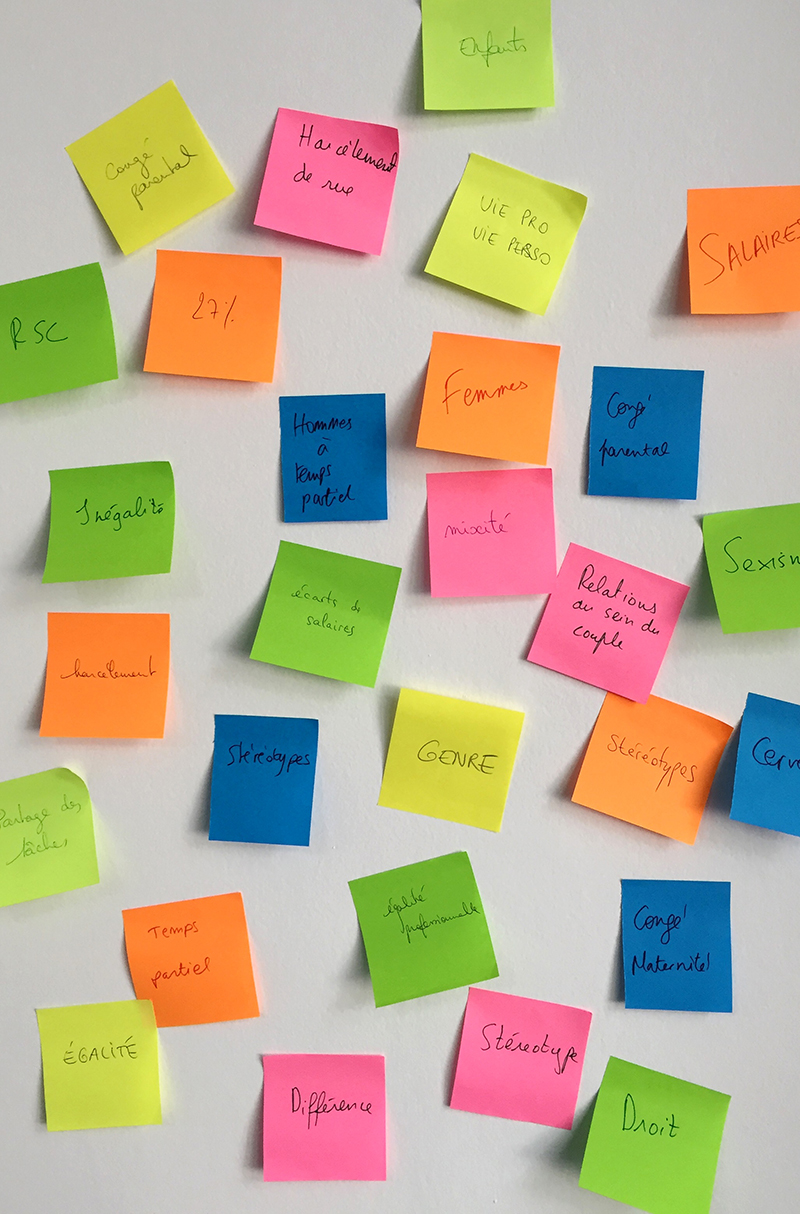 Enfants
Congé
parental
Harcèlement
de rue
VIE PRO
VIE PERSO
SALAIRES
RSC
27%
Femmes
Hommes
à
temps
partiel
Congé
parental
Inégalité
mixité
écarts de
salaires
Relations
au sein du
couple
Sexism
harcèlement
Stéréotypes
GENRE
Stéréotypes
Cerve
Partage des
tâches
égalité
professionnelle
Temps
partiel
Congé
Maternité
ÉGALITÉ
Stéréotype
Différence
Droit